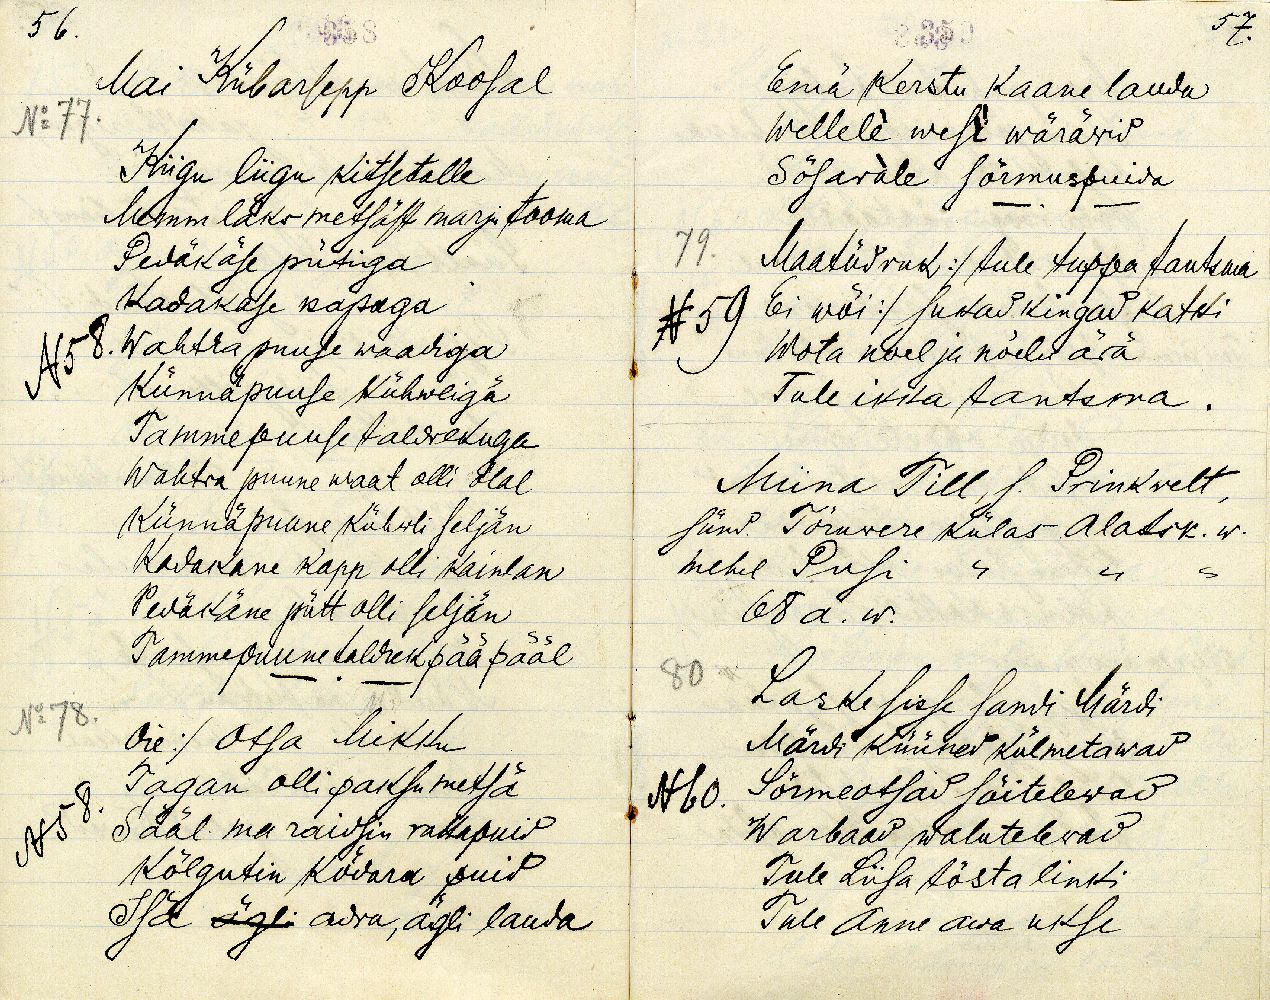 56.
358
Mai Kübarsepp Koosal
№ 77.
Kiigu liigu kitsetalle
Memm läks metsäst marju tooma
Pedäkäse pütiga
Kadakase kapaga
N 58. Wahtra puuse waadiga
Künnäpuuse kühwligä
Tammepuuse taldrekuga
Wahtra puune waat olli õlal
Künnäpuune kühwli seljän
Kadakane kapp olli kainlan
Pedäkäne pütt olli seljän
Tammepuune taldrek pää pääl
№ 78.
Oie :/ Otsa Mikku
Tagan olli paksu metsä
N 58. Sääl ma raidsin rattapuid
Kõlgutin kõdara puid
Isä ägli adra, ägli lauda
57.
359
Emä kerstu kaane lauda
Wellele wesi wäräwid
Sõsarale sõrmuspuida
79. Maatüdruk :/ tule tuppa tantsma
# 59 Ei wõi :/ sukad kingad katski
Wota noel ja nõelu ärä
Tule ikka tantsma.
Miina Till, s. Prinkwelt,
sünd. Tõruwere külas Alatsk. w.
mehel Pusi " " "
68 a. w.
80
Laske sisse sandi Märdi
Märdi küüned külmetawad
N 60. Sõrmeotsad sõitelewad
Warbaad walutelewad
Tule Liisa tõsta linki
Tule Anne awa ukse